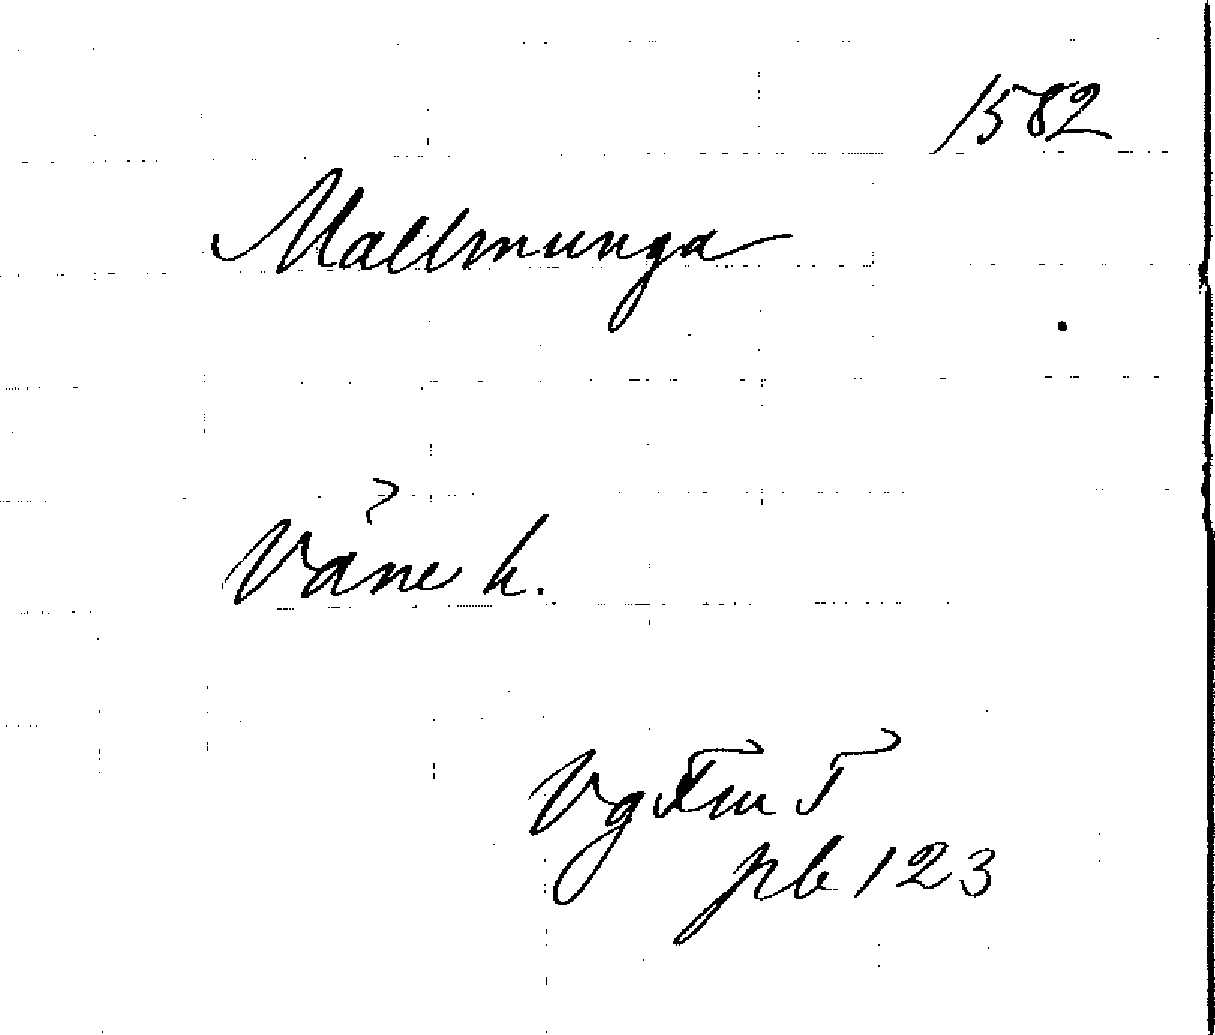 1582
Mallmunga
?
Väne h.
Vg Fru T
pb 123